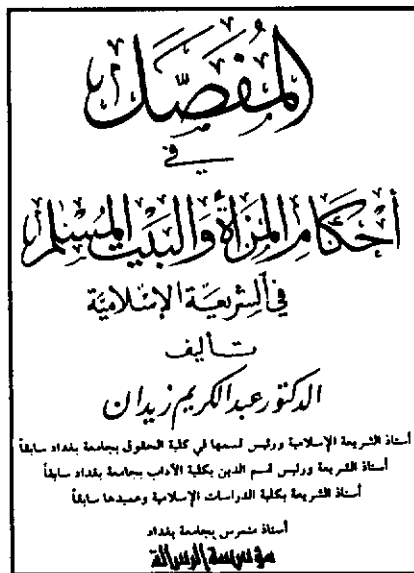 المُفَصَّل
في
أحْكَامِ المَرْأَةِ وَالبَيْتِ المُسْلِمِ
في الشريعَةِ الإسْلاميَّة
تأليف
الدكتور عبد الكريم زيدان
أستاذ الشريعة الإسلامية ورئيس قسمها في كلية الحقوق بجامعة بغداد سابقاً
أستاذ الشريعة ورئيس قسم الدين بكلية الآداب بجامعة بغداد سابقاً
أستاذ الشريعة بكلية الدراسات الإسلامية وعميدها سابقاً
أستاذ متمرس بجامعة بغداد
مؤسسة الرسالة